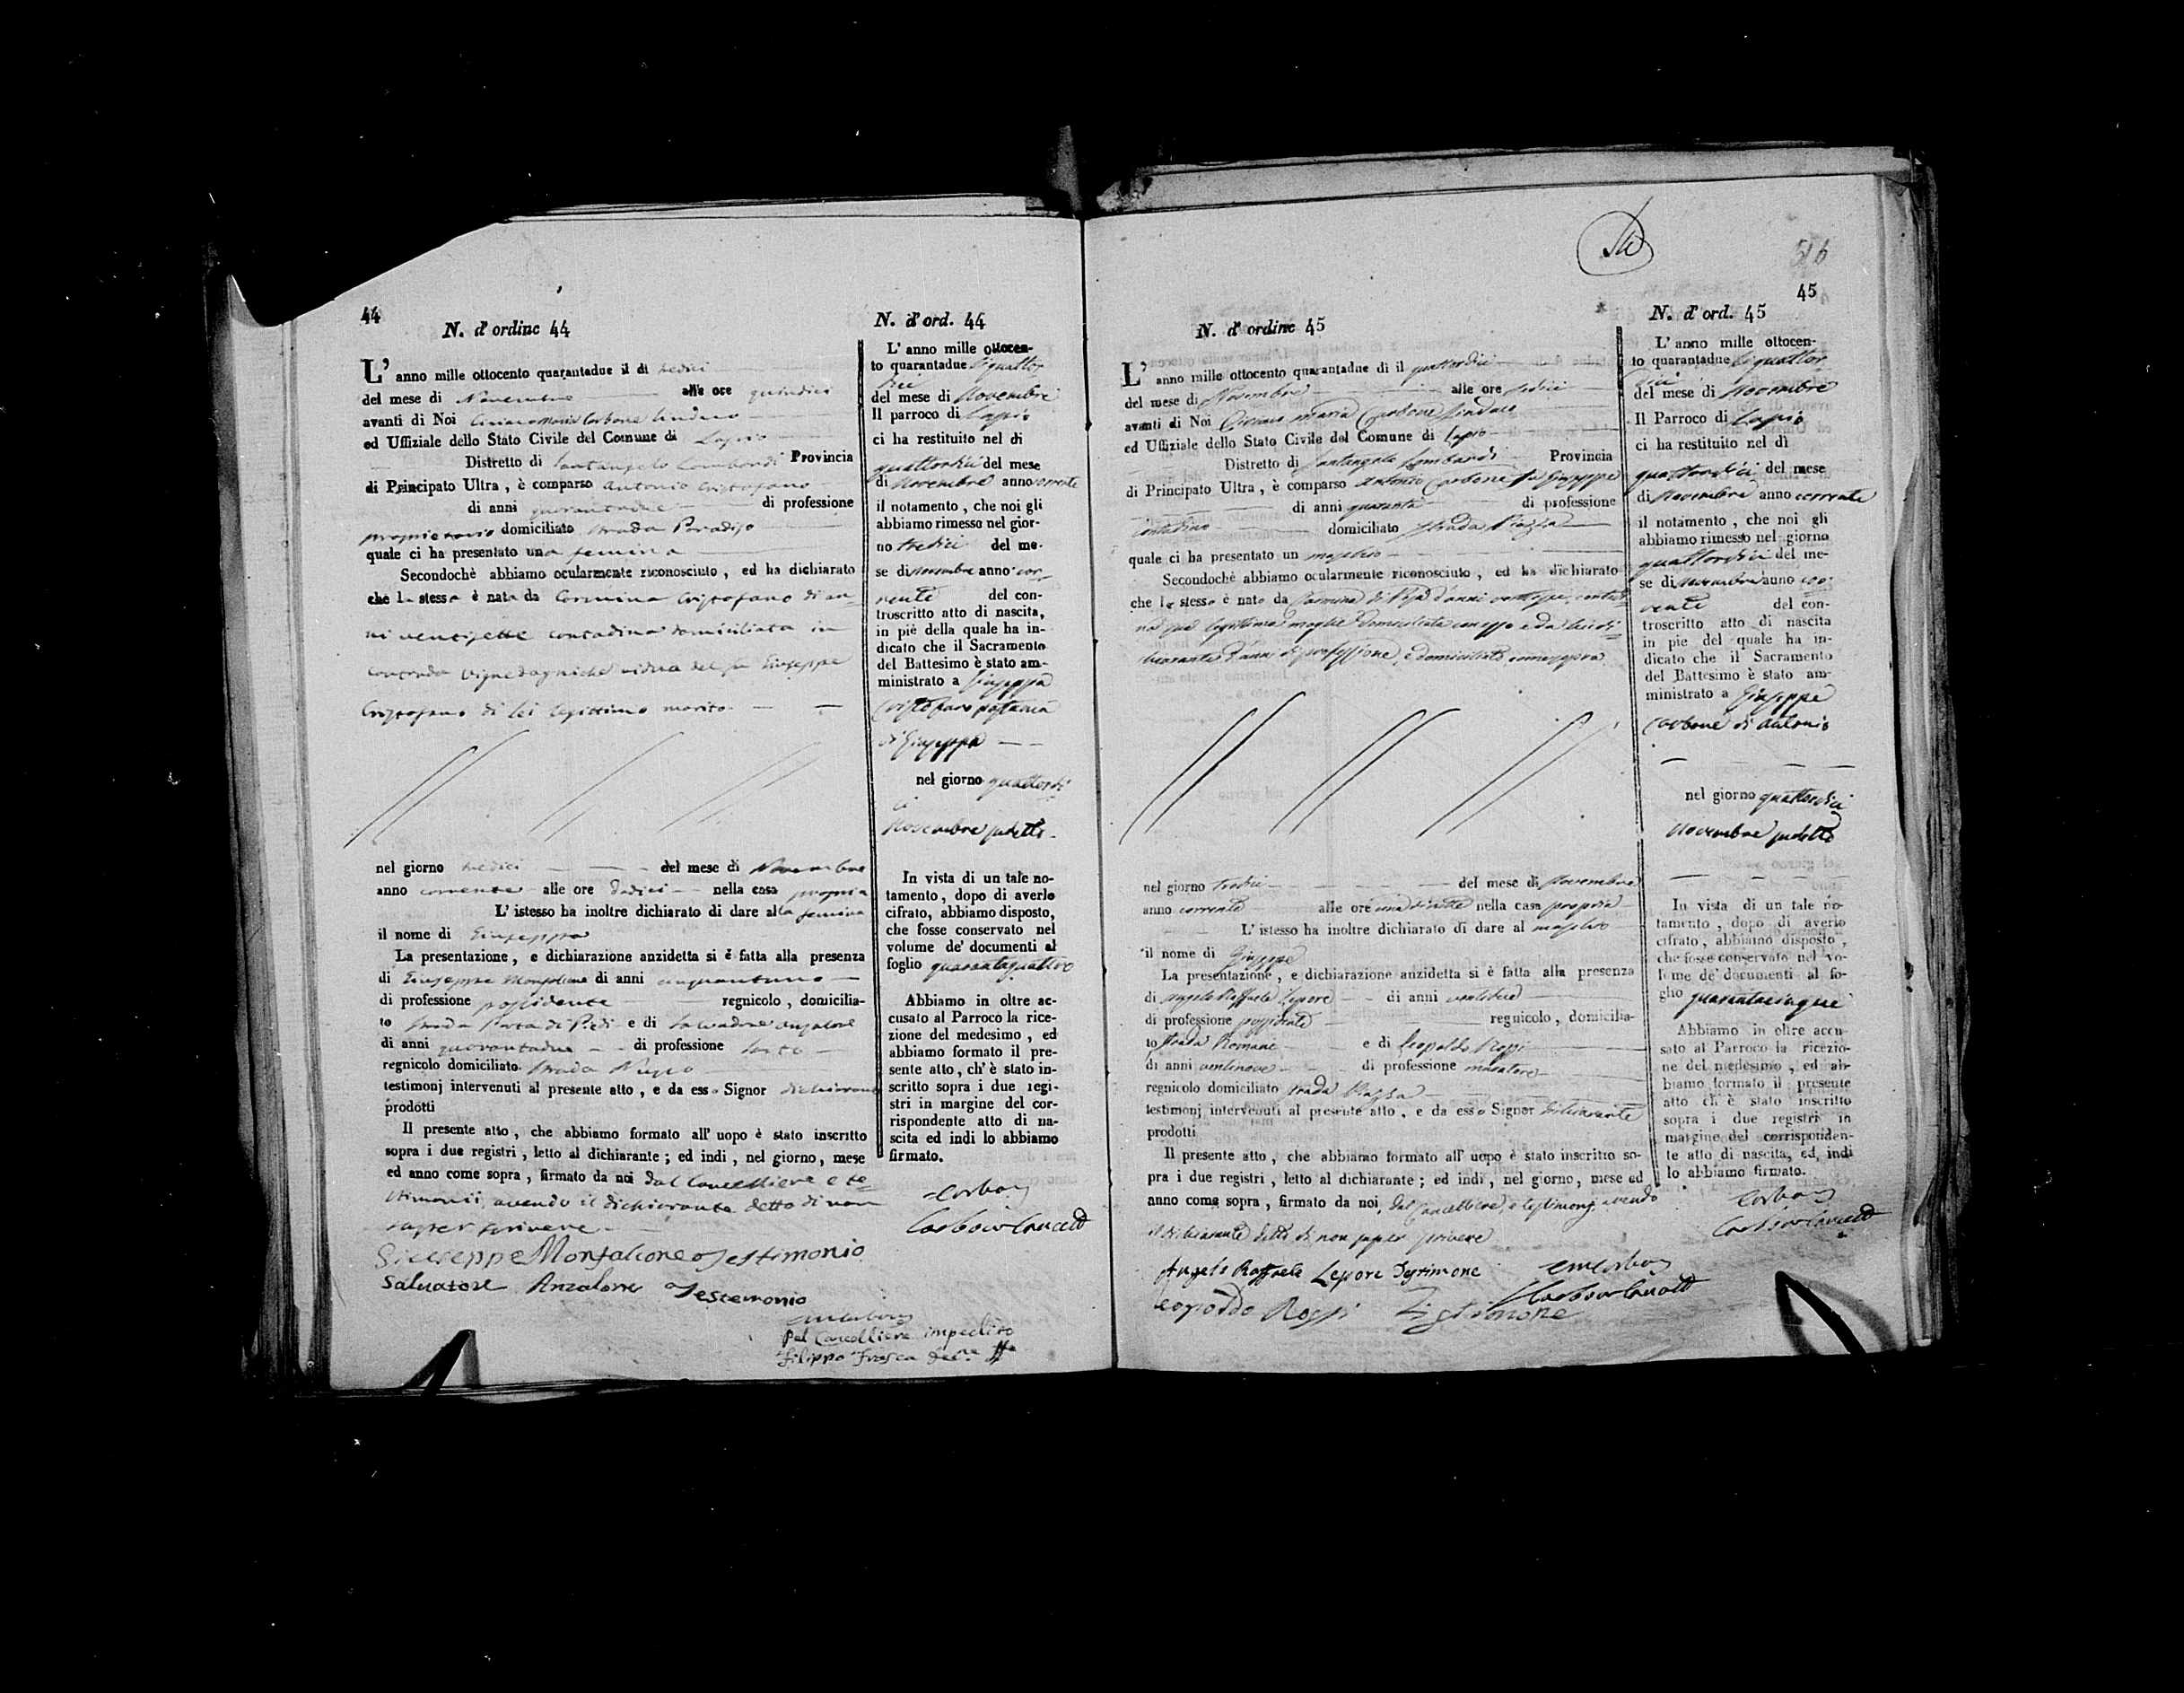 44
N. d'ordine 44
L'anno mille ottocento quarantadue il di tredici
del mese di Novembre alle ore quindici
avanti di Noi Ciriaco Maria Carbone Sindaco
ed Uffiziale dello Stato Civile del Comune di Lapio
Distretto di Santangelo Lombardi Provincia
di Principato Ultra, è comparso Antonio Cristofano
di anni quarantadue di professione
proprietario domiciliato strada Paradiso
quale ci ha presentato una femina
Secondochè abbiamo ocularmente riconosciuto, ed ha dichiarato
che la stessa è nata da Carmina Cristofano di an=
ni ventisette contadina domiciliata in
contrada vidua del fu Giuseppe
Cristofano di lei legittimo marito
nel giorno tredici del mese di Novembre
anno corrente alle ore dodici nella casa propria
L'istesso ha inoltre dichiarato di dare alla femina
il nome di Giuseppa
La presentazione, e dichiarazione anzidetta si è fatta alla presenza
di Giuseppe Monfalcone di anni cinquantuno
di professione possidente regnicolo, domicilia-
to strada Porta di Piedi e di Salvadore Anzalone
di anni quarantadue di professione sarto
regnicolo domiciliato strada
testimonj intervenuti al presente atto, e da esso Signor dichiarante
prodotti
Il presente atto, che abbiamo formato all'uopo è stato inscritto
sopra i due registri, letto al dichiarante; ed indi, nel giorno, mese
ed anno come sopra, firmato da noi dal Cancelliere e te=
stimonii avendo il dichiarante detto di non
saper scrivere
Giuseppe Monfalcone Testimonio
Salvatore Anzalone Testemonio
Pel Cancelliere impedito
Filippo Frasca
N. d'ord. 44
L'anno mille ottocen-
to quarantadue li quattor
dici
del mese di Novembre
Il parroco di Lapio
ci ha restituito nel di
quattordici del mese
di Novembre anno corrente
il notamento, che noi gli
abbiamo rimesso nel gior-
no tredici del me-
se di Novembre anno cor=
rente del con-
troscritto atto di nascita,
in piè della quale ha in-
dicato che il Sacramento
del Battesimo è stato am-
ministrato a Giuseppa
Cristofano postuma
di Giuseppe
nel giorno quattordi
ci
Novembre sudetto
In vista di un tale no-
tamento, dopo di averlo
cifrato, abbiamo disposto,
che fosse conservato nel
volume de' documenti al
foglio quarantaquattro
Abbiamo in oltre ac-
cusato al Parroco la rice-
zione del medesimo, ed
abbiamo formato il pre-
sente atto, ch'è stato in-
scritto sopra i due regi-
stri in margine del cor-
rispondente atto di na-
scita ed indi lo abbiamo
firmato.
516
45
N. d'ordine 45
L'anno mille ottocento quarantadue di il quattordici
del mese di Novembre alle ore sedici
avanti di Noi Ciriaco Maria Carbone Sindaco
ed Uffiziale dello Stato Civile del Comune di Lapio
Distretto di Santangelo Lombardi Provincia
di Principato Ultra, è comparso Antonio Carbone fu Giuseppe
di anni quaranta di professione
contadino domiciliato strada Piazza
quale ci ha presentato un maschio
Secondochè abbiamo ocularmente riconosciuto, ed ha dichiarato
che lo stesso è nato da Carmina di d'anni contadi=
na sua legittima moglie domiciliata con esso e da lui di=
chiarante d'anni di professione, e domiciliato come sopra
nel giorno tredici del mese di Novembre
anno corrente alle ore nella casa propria
L'istesso ha inoltre dichiarato di dare al maschio
il nome di Giuseppe
La presentazione, e dichiarazione anzidetta si è fatta alla presenza
di Angelo Raffaele Lepore di anni
di professione possidente regnicolo, domicilia-
to strada Romani e di Leopoldo Rossi
di anni ventinove di professione muratore
regnicolo domiciliato strada Piazza
testimonj intervenuti al presente atto, e da esso Signor dichiarante
prodotti
Il presente atto, che abbiamo formato all'uopo è stato inscritto so-
pra i due registri, letto al dichiarante; ed indi, nel giorno, mese ed
anno come sopra, firmato da noi, dal Cancelliere, e testimonj avendo
il dichiarante detto di non saper scrivere
Angelo Raffaele Lepore Testimone
Leopoldo Rossi Testimone
N. d'ord. 45
L'anno mille ottocen-
to quarantadue li quattor
dici
del mese di Novembre
Il Parroco di Lapio
ci ha restituito nel dì
quattordici del mese
di Novembre anno corrente
il notamento, che noi gli
abbiamo rimesso nel giorno
quattordici del me-
se di Novembre anno cor=
rente del con-
troscritto atto di nascita
in pie del quale ha in-
dicato che il Sacramento
del Battesimo è stato am-
ministrato a Giuseppe
Carbone di Antonio
nel giorno quattordici
Novembre sudetto
In vista di un tale no-
tamento, dopo di averlo
cifrato, abbiamo disposto,
che fosse conservato nel vo-
lume de' documenti al fo-
glio quarantacinque
Abbiamo in oltre accu-
sato al Parroco la ricezio-
ne del medesimo, ed ab-
biamo formato il presente
atto ch'è stato inscritto
sopra i due registri in
margine del corrisponden-
te atto di nascita, ed indi
lo abbiamo firmato.